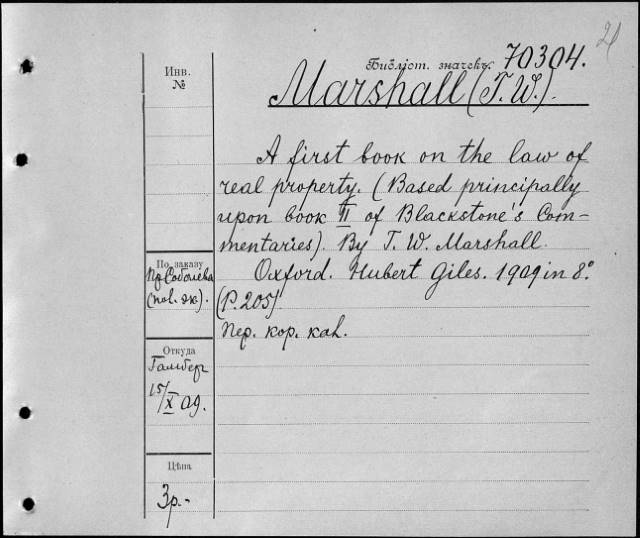 21
Библіот. значекъ 70304.
Marshall (T. W.).
Инв.
№
A first book on the law of
real property. (Based principally
upon book II of Blackstone's Com-
mentaries). By T. W. Marshall.
Oxford. Hubert Giles. 1909 in 8°.
(P. 205)
Пер. кор. кал.
По заказу
Пр. Соболева
(нов. эк).
Откуда
Гамбер
15/X 09.
Цѣна
3р.-